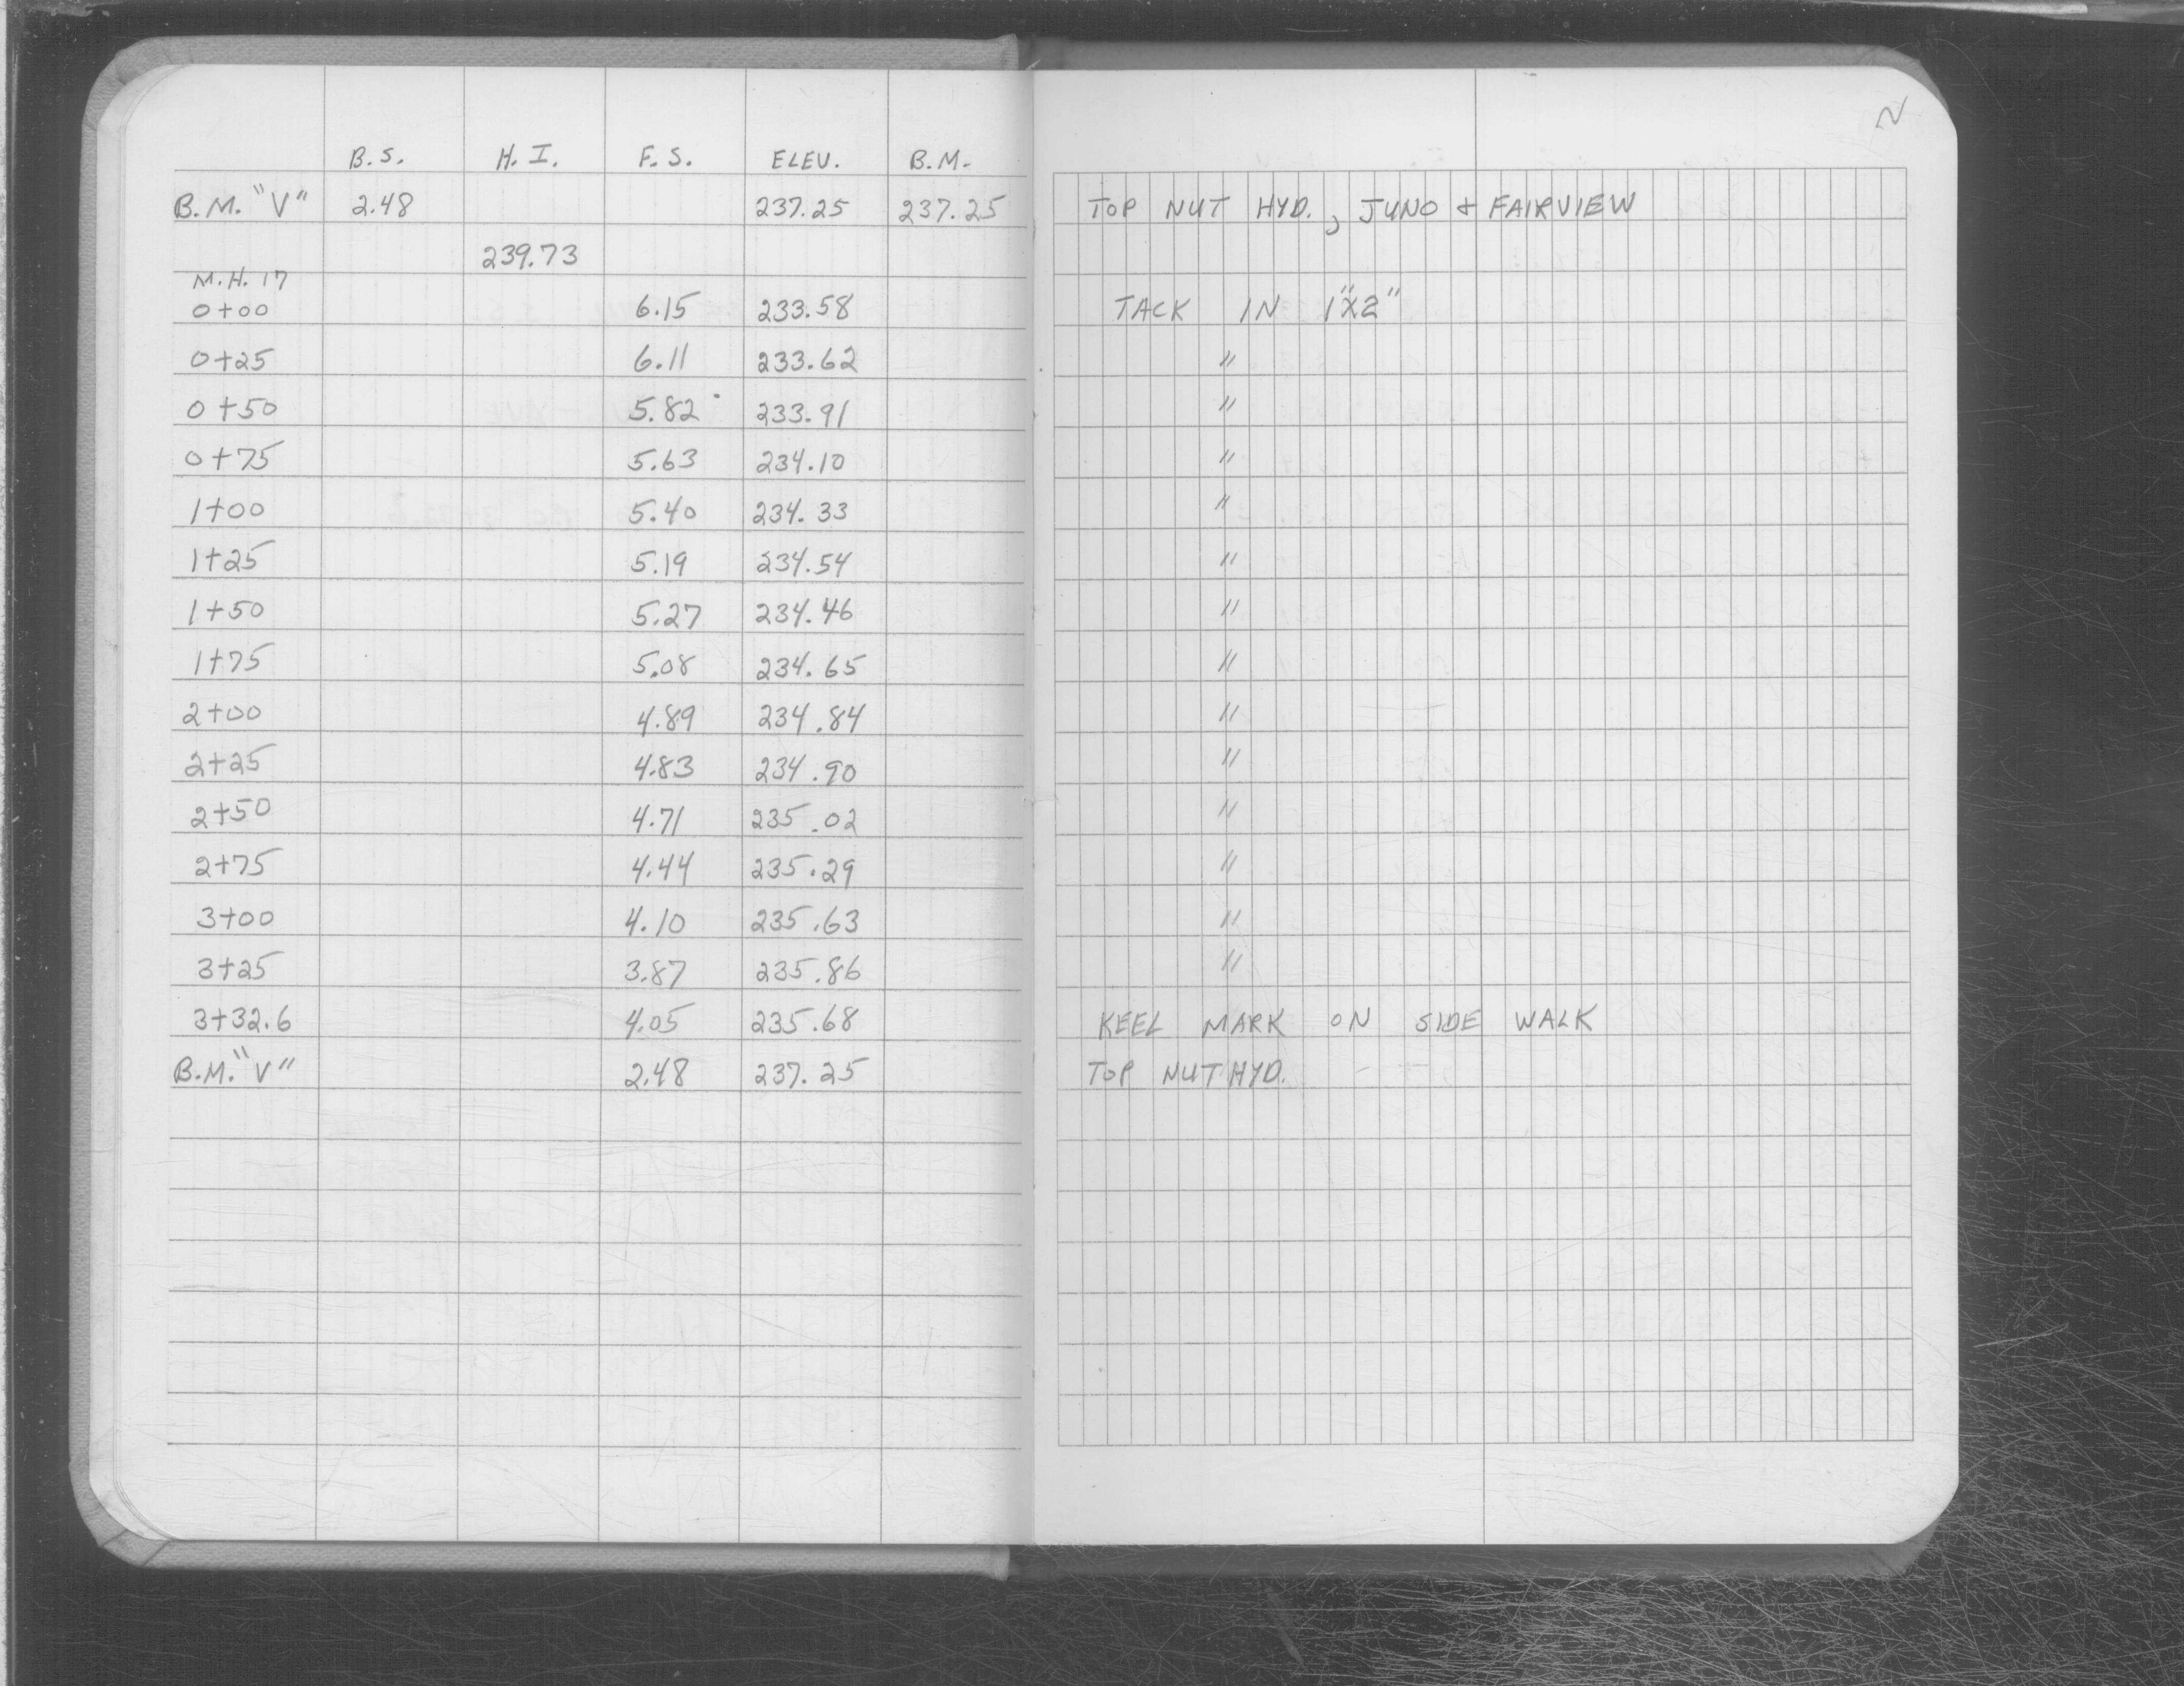 2
B.S. H.I. F.S. ELEV. B.M.
B.M. "V" 2.48 237.25 237.25 TOP NUT HYD., JUNO + FAIRVIEW
239.73
M.H. 17
0+00 6.15 233.58 TACK IN 1"X2"
0+25 6.11 233.62 "
0+50 5.82 233.91 "
0+75 5.63 234.10 "
1+00 5.40 234.33 "
1+25 5.19 234.54 "
1+50 5.27 234.46 "
1+75 5.08 234.65 "
2+00 4.89 234.84 "
2+25 4.83 234.90 "
2+50 4.71 235.02 "
2+75 4.44 235.29 "
3+00 4.10 235.63 "
3+25 3.87 235.86 "
3+32.6 4.05 235.68 KEEL MARK ON SIDE WALK
B.M. "V" 2.48 237.25 TOP NUT HYD.